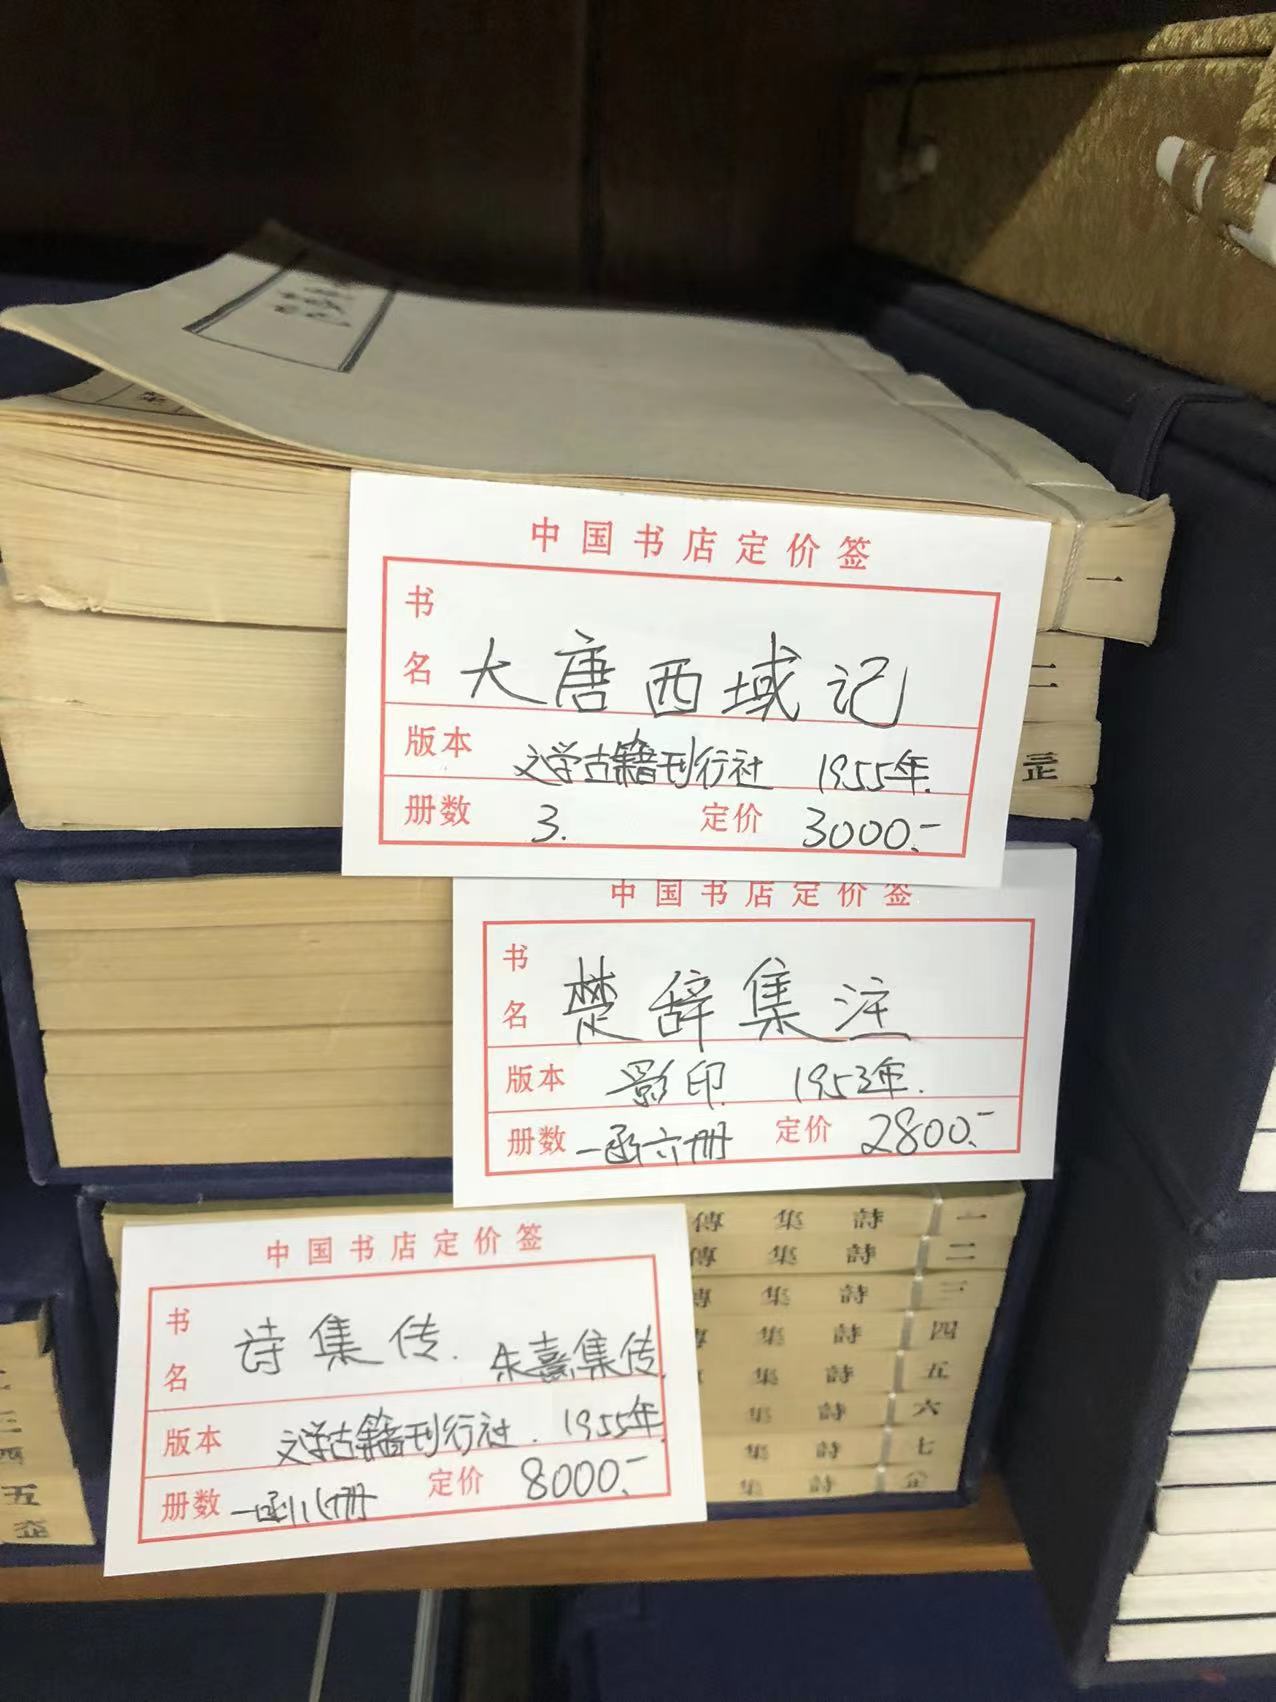 一
二
三止
中国书店定价签
书名 大唐西域记
版本 文学古籍刊行社 1955年.
册数 3. 定价 3000.-
中国书店定价签
书名 楚辞集注
版本 影印 1953年.
册数 一函六册 定价 2800.-
中国书店定价签
书名 诗集传. 朱熹集传.
版本 文学古籍刊行社. 1955年.
册数 一函八册 定价 8000.-
傳 集 詩 一
傳 集 詩 二
傳 集 詩 三
集 詩 四
集 詩 五
集 詩 六
集 詩 七
集 詩
三
四
五